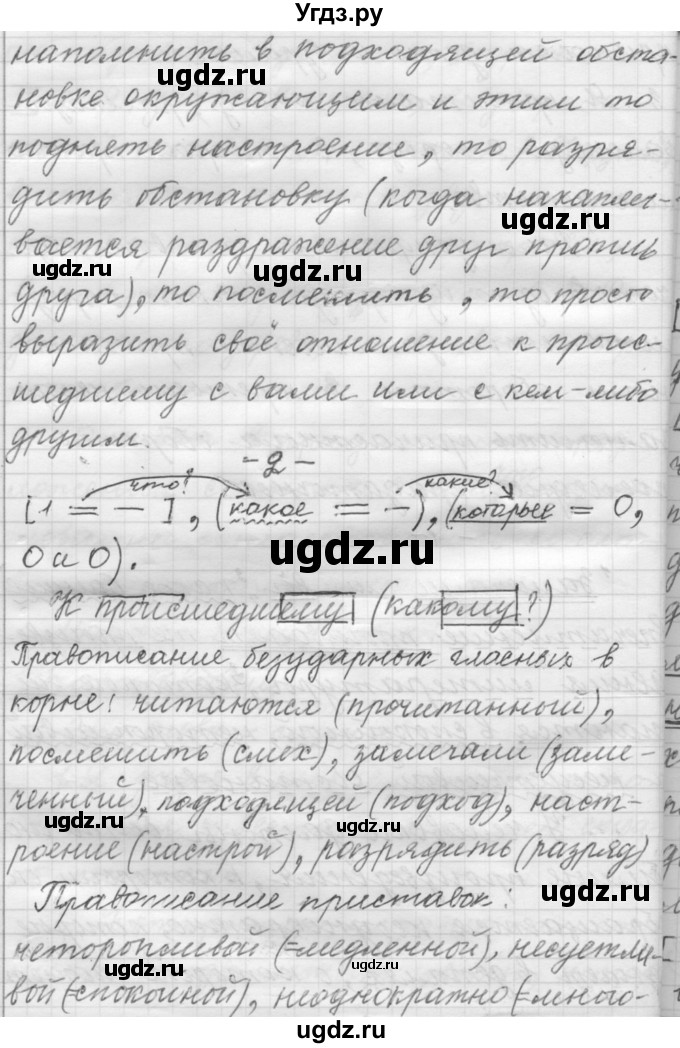 Угдз.ру
напомнить в подходящей обста-
новке окружающим и этим то
поднять настроение, то разря-
дить обстановку (когда накапли-
вается раздражение друг против
друга), то посмешить, то просто
выразить своё отношение к проис-
шедшему с вами или с кем-либо
другим.
- 2 -
что? какие?
[1 = - ], (какое = -), (которые = О,
О и О).
К происшедшему (какому?)
Правописание безударных гласных в
корне: читаются (прочитанный),
посмешить (смех), замечали (заме-
ченный), подходящей (подход), наст-
роение (настрой), разрядить (разряд)
Правописание приставок:
неторопливой (=медленной), несуетли-
вой (=спокойной), неоднократно (=много-
ugdz.ru